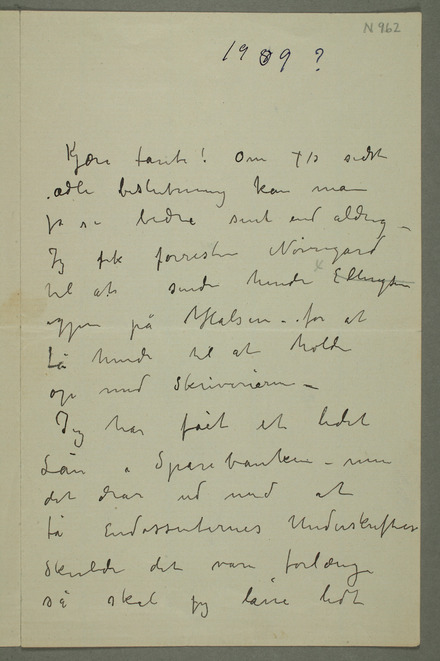 N 962
1909 ?
Kjære tante! Om   sidst
ædle beslutning kan man
jo si bedre sent end aldrig –
Jeg fik forresten Nörregård
til at sende hende Ellingsen
igjen på Halsen – for at
få hende til at holde
op med skriverierne –
Jeg har fåit et lidet
Lån i Sparebanken – men
det drar ud med at
få Endossenternes Underskrifter
Skulde det vare forlænge
så skal jeg låne lidt